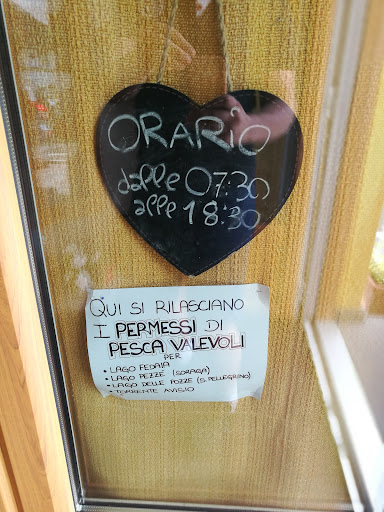 ORARIO
dalle 07:30
alle 18:30
QUI SI RILASCIANO
I PERMESSI DI
PESCA VALEVOLI
PER
• LAGO FEDAIA
• LAGO PEZZE (SORAGA)
• LAGO DELLE POZZE (S. PELLEGRINO)
• TORRENTE AVISIO